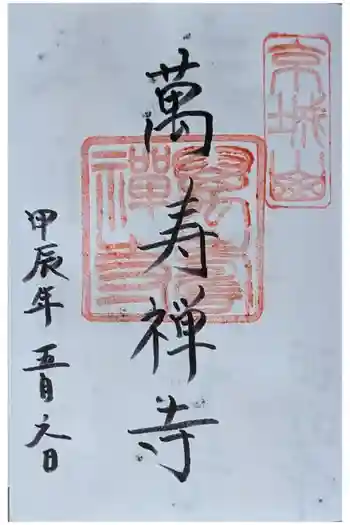 京城山
萬壽
禪寺
萬寿禅寺
甲辰年 五月 日